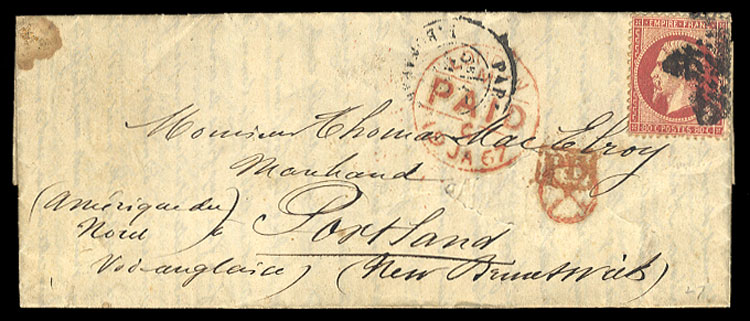 EMPIRE FRANC
80 C POSTES 80 C
PAR
PAID
JA 67
P.D.
Monsieur Thomas Mac Elroy
Marchand
(Amérique du
Nord)
à Portland
Voie anglaise) (New Brunswick)
27